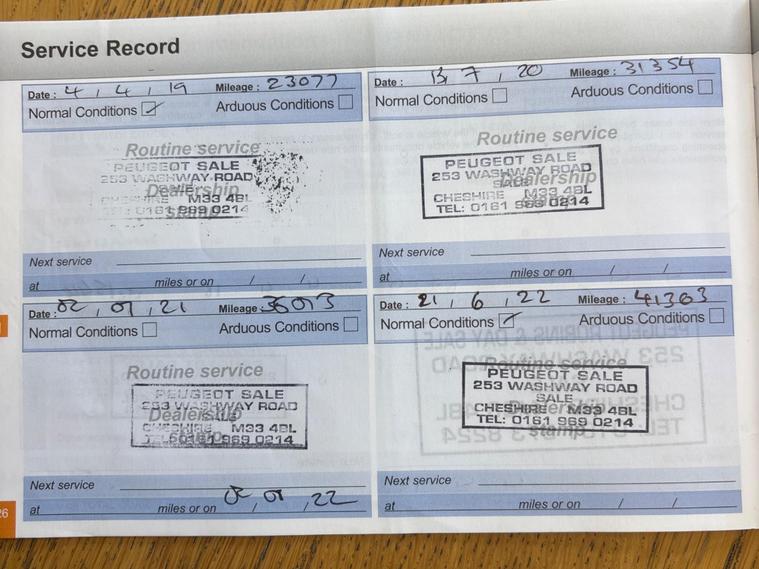 Service Record
Date : 4 / 4 / 19 Mileage : 23077
Normal Conditions ✓ Arduous Conditions
Routine service
PEUGEOT SALE
253 WASHWAY ROAD
Dealership
CHESHIRE M33 4BL
stamp
TEL: 0161 969 0214
Next service
at miles or on / /
Date : 13 / 7 / 20 Mileage : 31354
Normal Conditions Arduous Conditions
Routine service
PEUGEOT SALE
253 WASHWAY ROAD
SALE
Dealership
CHESHIRE M33 4BL
stamp
TEL: 0161 969 0214
Next service
at miles or on / /
Date : 02 / 07 / 21 Mileage :
Normal Conditions Arduous Conditions
Routine service
PEUGEOT SALE
253 WASHWAY ROAD
Dealership
CHESHIRE M33 4BL
stamp
TEL: 0161 969 0214
Next service
at miles or on 02 / 07 / 22
Date : 21 / 6 / 22 Mileage : 41363
Normal Conditions ✓ Arduous Conditions
Routine service
PEUGEOT SALE
253 WASHWAY ROAD
SALE
Dealership
CHESHIRE M33 4BL
TEL: 0161 969 0214
stamp
Next service
at miles or on / /
26